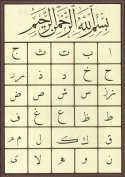 بسم الله الرحمن الرحيم
ا ب ت ث ج
ح خ د ذ ر ز
س ش ص ض
ط ظ ع غ ف
ق ك ل م
ن و ه لا ى